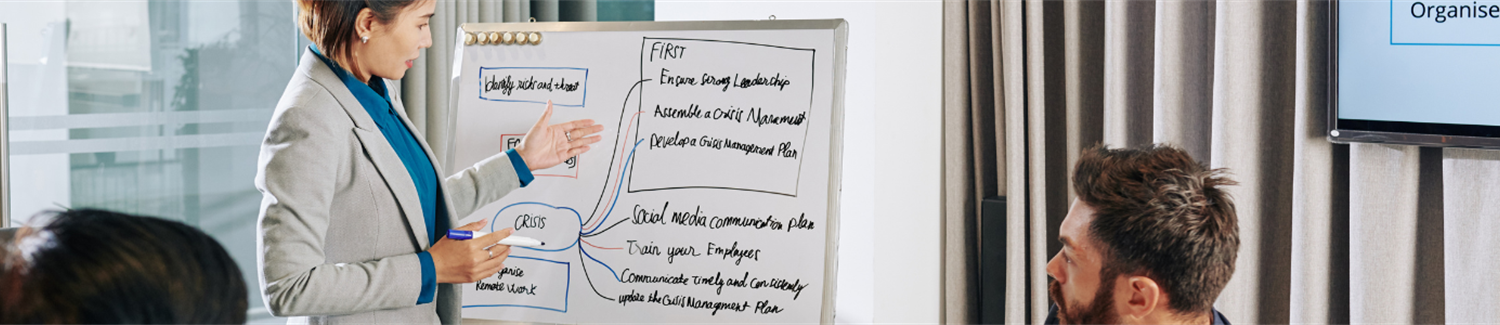 Organise
FIRST
Ensure Strong Leadership
Assemble a Crisis Manarment
Develop a Crisis Management Plan
Identify risks and threat
CRISIS
Social media communication plan
Train your Employees
Communicate timely and consistenly
update the Crisis Management Plan
Remote work